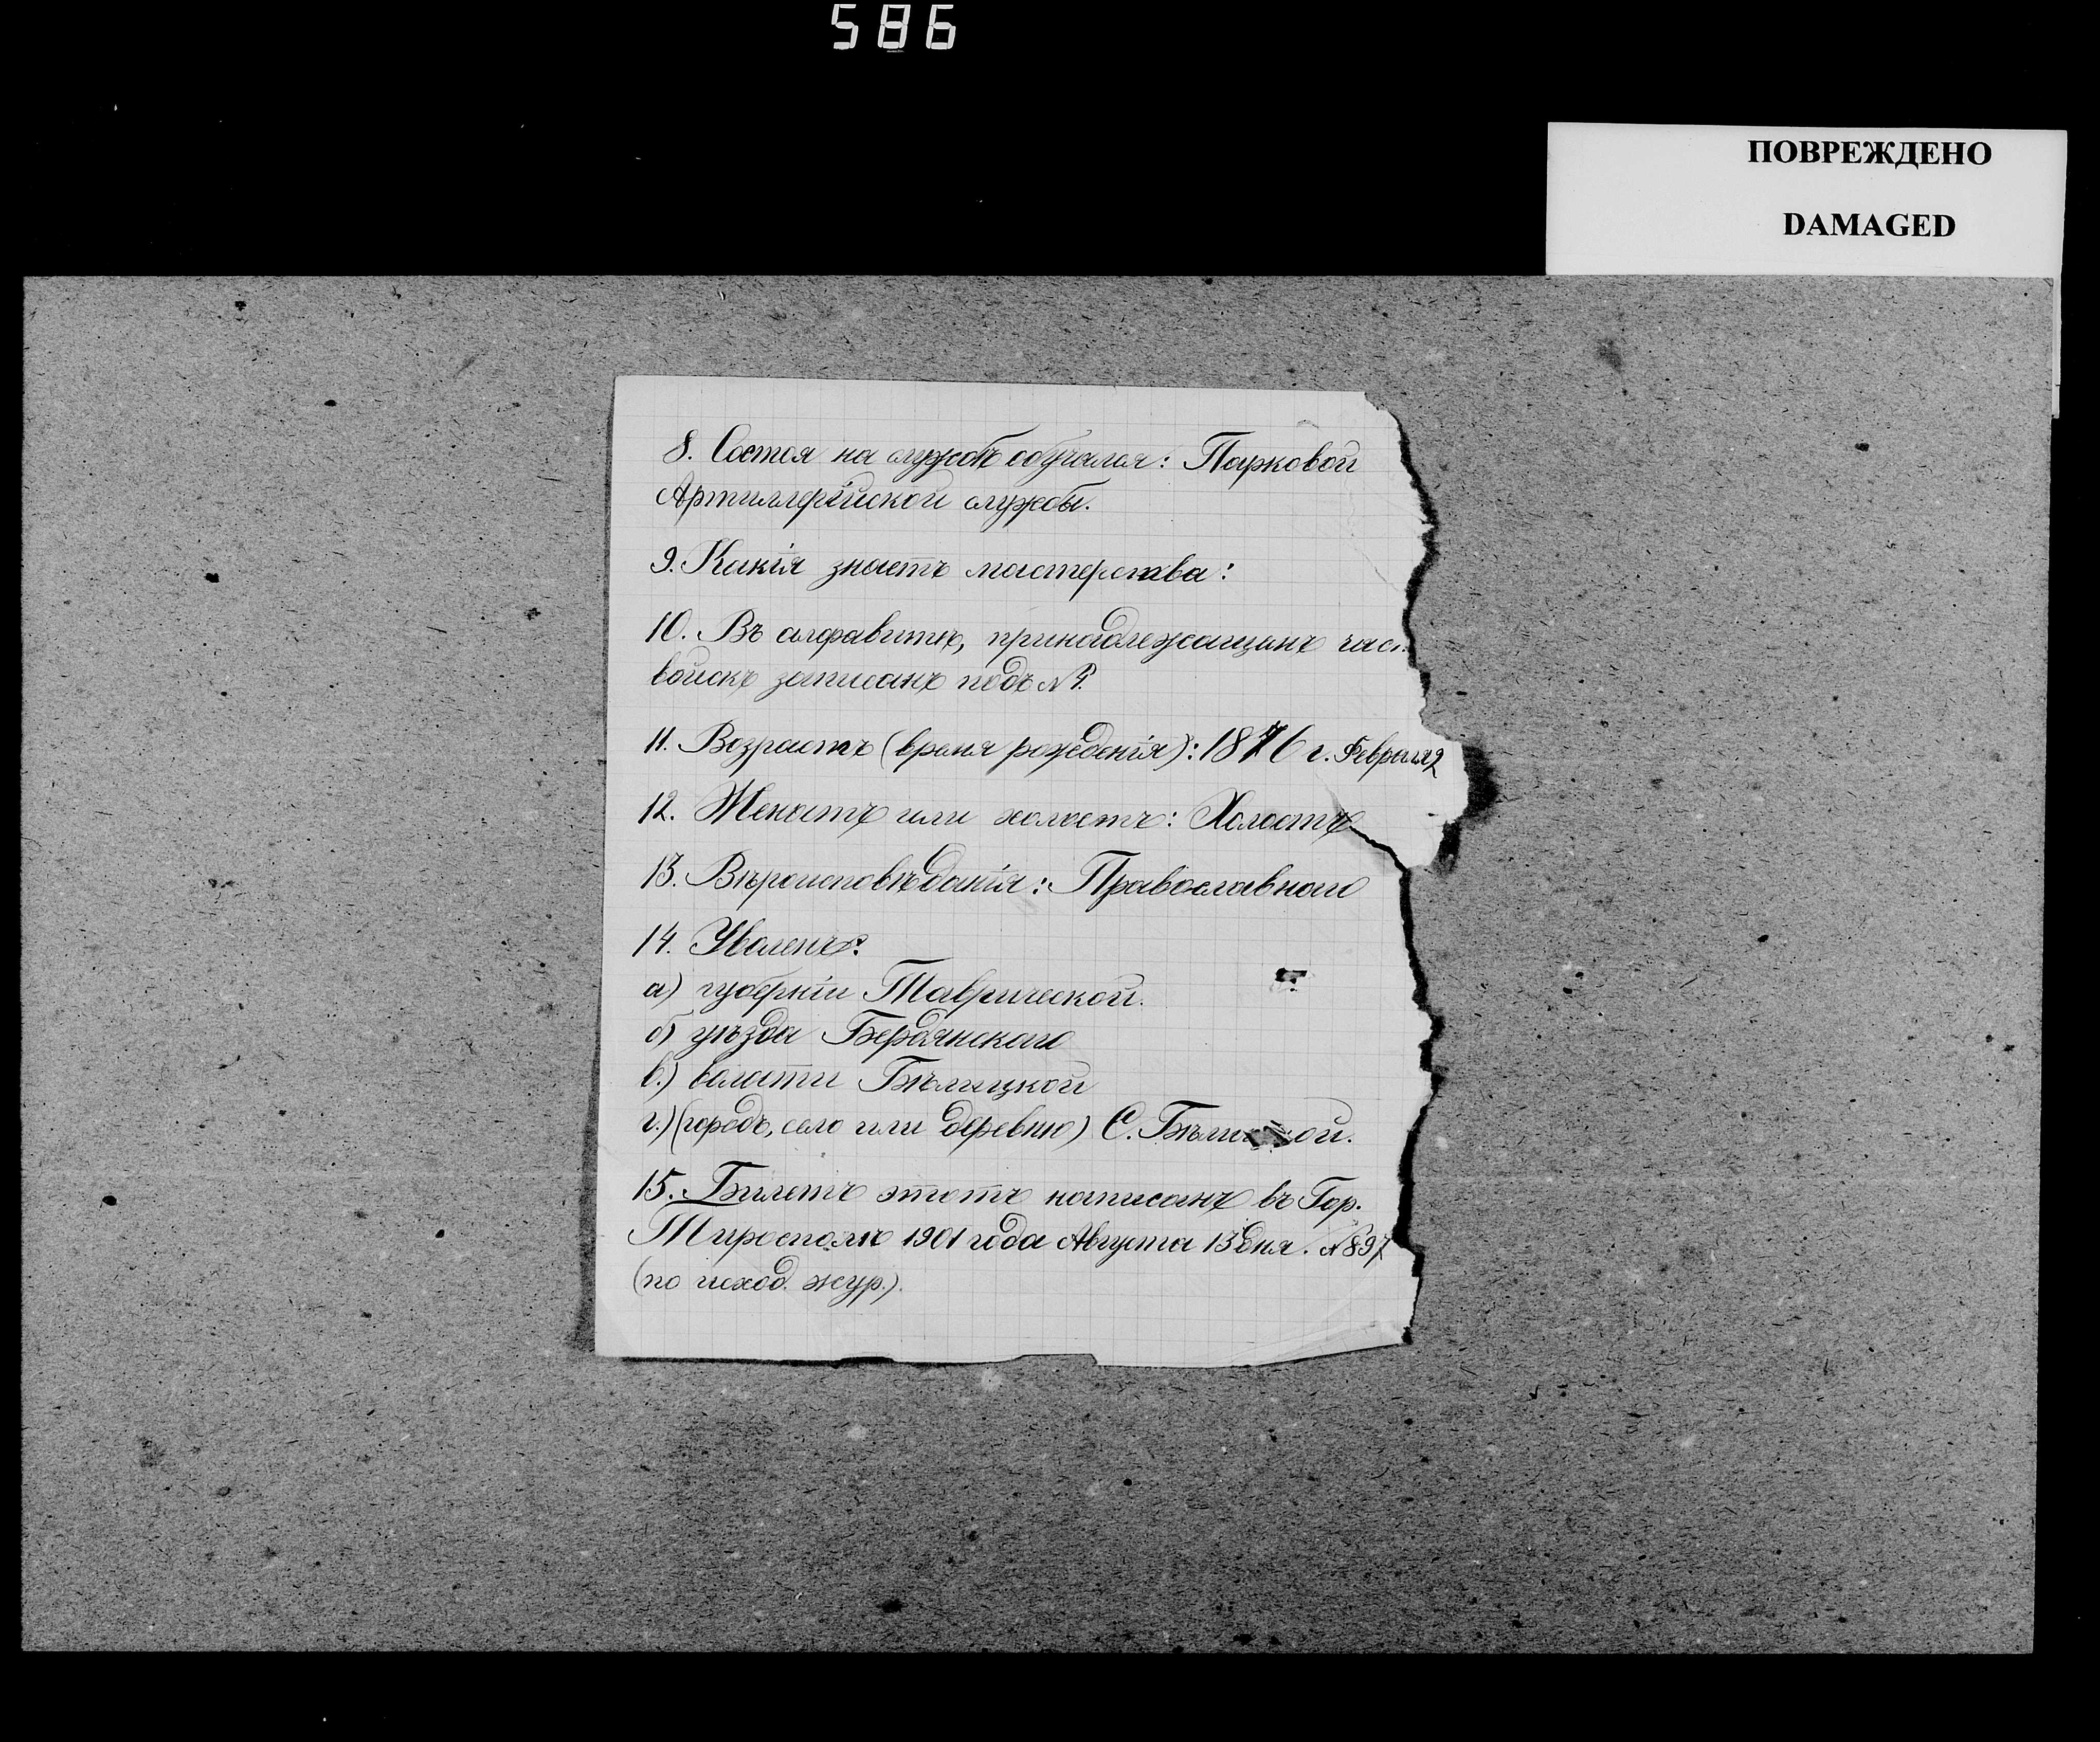 586
ПОВРЕЖДЕНО
DAMAGED
8. Состоя на службѣ обучался: Парковой
Артиллерійской службы.
9. Какія знаетъ мастерства:
10. Въ алфавитѣ, принадлежащихъ
войскъ записанъ подъ №
11. Возрастъ (время рожденія): 1876 г. Февраля 2
12. Женатъ или холостъ: Холостъ
13. Вѣроисповѣданія: Православного
14. Уволенъ:
а) губерніи Таврической.
б) уѣзда Бердянскаго
в.) волости Бѣлицкой
г.) (городъ, село или деревню) С. Бѣлицкой.
15. Билетъ этотъ написанъ въ Гор.
Тирасполѣ 1901 года Августа 13 дня. № 897
(по исход. жур.).